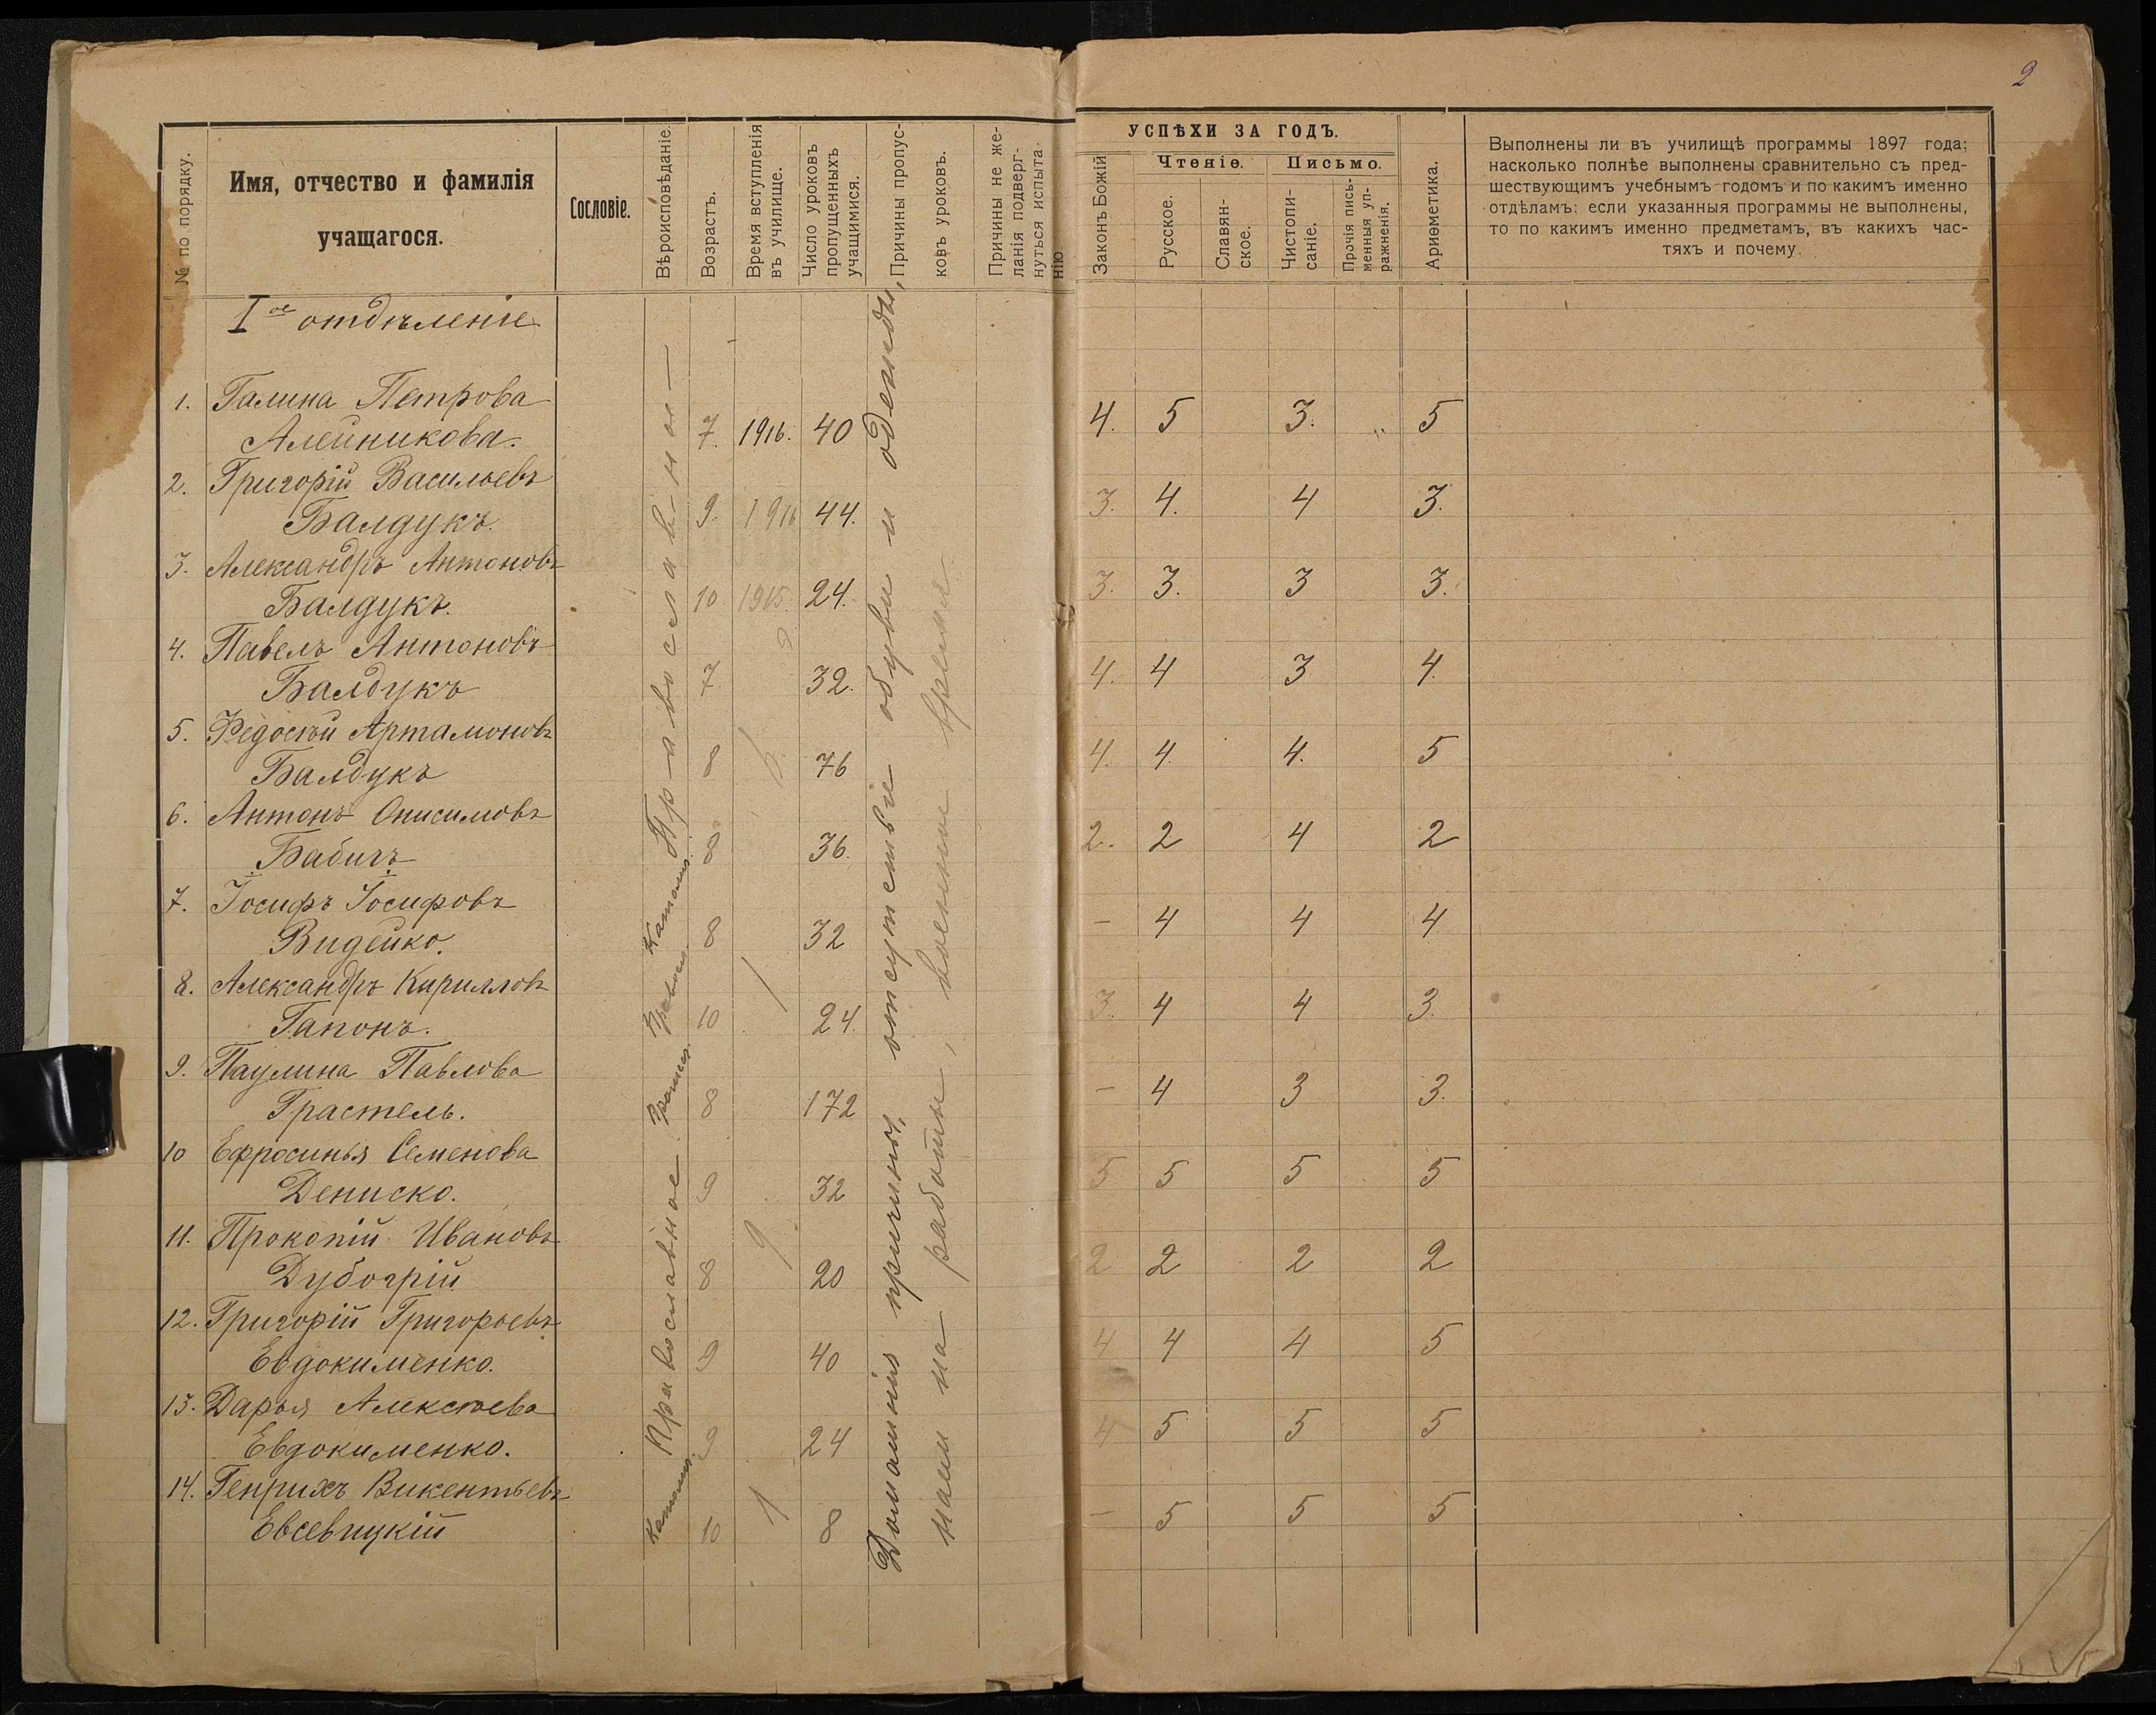 2
№ по порядку.
Имя, отчество и фамилія
учащагося.
Сословіе.
Вѣроисповѣданіе.
Возрастъ.
Время вступленія
въ училище.
Число уроковъ
пропущенныхъ
учащимися.
Причины пропус-
ковъ уроковъ.
Причины не же-
ланія подверг-
нуться испыта-
нію
УСПѢХИ ЗА ГОДЪ.
Законъ Божій
Чтеніе.
Письмо.
Русское.
Славян-
ское.
Чистопи-
саніе.
Прочія пись-
менныя уп-
ражненія.
Ариѳметика.
Выполнены ли въ училищѣ программы 1897 года;
насколько полнѣе выполнены сравнительно съ пред-
шествующимъ учебнымъ годомъ и по какимъ именно
отдѣламъ: если указанныя программы не выполнены,
то по какимъ именно предметамъ, въ какихъ час-
тяхъ и почему.
I ое отдѣленіе
1. Галина Петрова
Алейникова. 7. 1916. 40 4. 5 3. " 5
2. Григорій Васильевъ
Балдукъ. 9. 1916 44. 3. 4. 4 3.
3. Александръ Антоновъ
Балдукъ. 10 1915. 24. 3. 3. 3 3.
4. Павелъ Антоновъ
Балдукъ 7. 32. 4. 4 3 4.
5. Федосѣй Артамоновъ
Балдукъ 8 76 4. 4. 4. 5
6. Антонъ Онисимовъ
Бабичъ 8 36. 2. 2 4 2
7. Іосифъ Іосифовъ
Видейко. 8 32 - 4 4 4
8. Александръ Кирилловъ
Гапонъ. 10 24. 3. 4 4 3.
9. Паулина Павлова
Грастель. 8 172 - 4 3 3.
10 Ефросинья Семенова
Дениско. 9 32 5 5 5 5
11. Прокопій Ивановъ
Дубогрій 8 20 2 2 2 2
12. Григорій Григорьевъ
Евдокименко. 9 40 4 4 4 5
13. Дарья Алексѣева
Евдокименко. 9 24 4 5 5 5
14. Генрихъ Викентьевъ
Евсевицкій 10 8 - 5 5 5
Православное
Католич.
Правосл.
Православное
Католич.
1916
Домашнія причины, отсутствіе обуви и одежды,
наши на работы, военное время